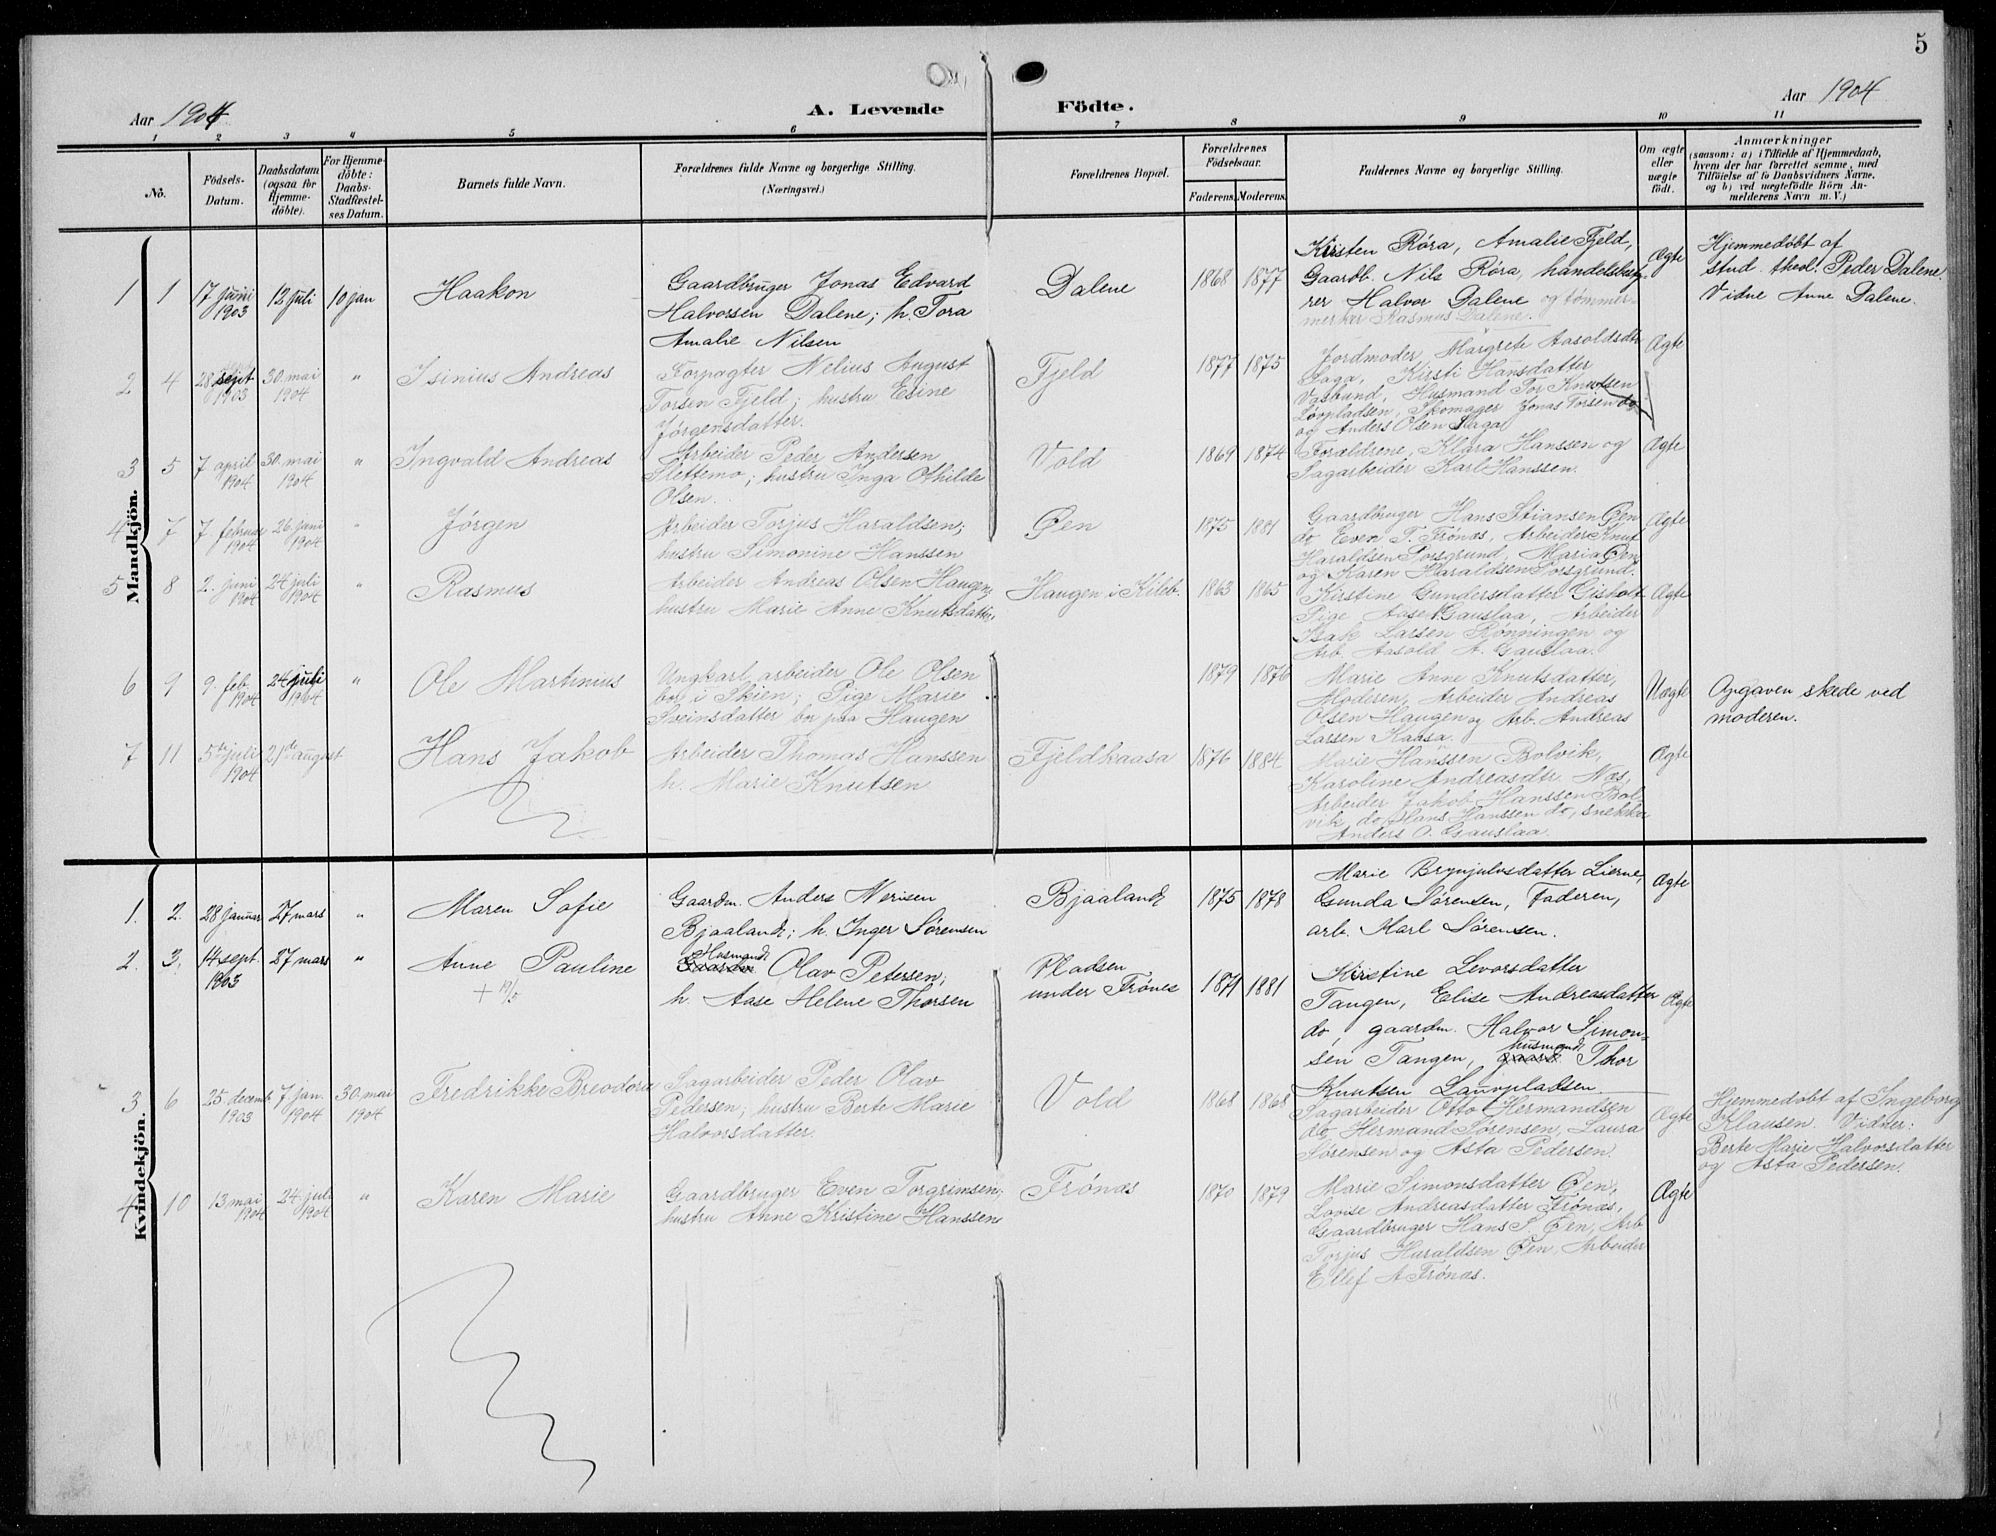 5
Aar 1904.
A. Levende Födte.
Aar 1904
1 2 3 4 5 6 7 8 9 10 11
No.
Födsels-
Datum.
Daabsdatum
(ogsaa for
Hjemme-
döbte).
For Hjemme-
döbte:
Daabs-
Stadfæstel-
ses Datum.
Barnets fulde Navn.
Forældrenes fulde Navne og borgerlige Stilling.
(Næringsvei.)
Forældrenes Bopæl.
Forældrenes
Födselsaar.
Faderens. Moderens.
Faddernes Navne og borgerlige Stilling.
Om ægte
eller
uægte
födt.
Anmærkninger
(saasom: a) i Tilfælde af Hjemmedaab,
hvem der har forrettet samme, med
Tilföielse af to Daabsvidners Navne,
og b) ved uægtefödte Börn An-
melderens Navn m. V.)
Mandkjön.
1 1 17 juni
1903
12 juli 10 jan
Haakon
Gaardbruger Jonas Edvard
Halvorsen Dalene; h. Tora
Amalie Nilsen
Dalene
1868 1877
Kirsten Røra, Amalie Fjeld,
Gaardb. Nils Røra, handelsbesty-
rer Halvor Dalene og tømmer-
merker Rasmus Dalene.
Ægte
Hjemmedøbt af
stud. theol. Peder Dalene.
Vidne Anne Dalene.
2 4 28 sept
1903
30. mai
1904
"
Isinius Andreas
Forpagter Nelius August
Torsen Fjeld; hustru Esine
Jørgensdatter.
Fjeld
1877 1875
Jordmoder Margrete Aasoldsdtr
Saga, Kirsti Hansdatter
Vasbund, Husmand Tor Knutsen
Løvpladsen, Skomager Jonas Torsen do
og Anders Olsen Saga
Ægte
3 5 7 april
1904
30. mai
1904
"
Ingvald Andreas
Arbeider Peder Andersen
Slettemo; hustru Inga Othilde
Olsen.
Vold
1869 1874
Forældrene, Klara Hanssen og
Sagarbeider Karl Hanssen.
Ægte
4 7 7 februar
1904
26. juni
1904
"
Jørgen
Arbeider Torjus Haraldsen;
hustru Simonine Hanssen
Øen
1875 1881
Gaardbruger Hans Stiansen Øen
do Even T. Frónæs, Arbeider Knut
Haraldsen Porsgrund, Maria Øen
og Karen Haraldsen Porsgrund.
Ægte
5 8 2. juni
1904
24 juli
1904
"
Rasmus
Arbeider Andreas Olsen Haugen;
hustru Marie Anne Knutsdatter.
Haugen i Kileb.
1863 1865
Kirstine Gundersdatter Gisholt
Pige Aase Gauslaa, Arbeider
Isak Larsen Rønningen og
Arb. Aasold A. Gauslaa.
Ægte
6 9 9. feb
1904
24 juli
1904
"
Ole Martinius
Ungkarl arbeider Ole Olsen
bor i Skien; Pige Marie
Sveinsdatter bor paa Haugen
1879 1876
Marie Anne Knutsdatter,
Moderen, Arbeider Andreas
Olsen Haugen og Arb. Andreas
Larsen Kaasa.
Uægte
Opgaven skede ved
moderen.
7 11 5te juli
1904
21de august
Hans Jakob
Arbeider Thomas Hanssen
h. Marie Knutsen
Fjeldkaasa
1876 1884
Marie Hanssen Bolvik,
Karoline Andreasdtr. Næs,
Arbeider Jakob Hanssen Bol-
vik, do Hans Hanssen do, snekker
Anders O. Gauslaa.
Ægte
Kvindekjön.
1. 2. 28 januar 27 mars "
Maren Sofie
Gaardm. Anders Nerisen
Bjaaland; h. Inger Sørensen
Bjaaland
1875 1878
Marie Brynjulvsdatter Lierne,
Gunda Sørensen, Faderen,
arb. Karl Sørensen.
Ægte
2. 3. 14 sept.
1903
27 mars "
Anne Pauline
+ 19/5
Husmand
Gaardbr Olav Petersen;
h. Aase Helene Thorsen
Pladsen
under Frönes
1871 1881
Kirstine Levorsdatter
Tangen, Elise Andreasdatter
do, gaardm. Halvor Simon-
husmand
sen Tangen, gaard Thor
Knutsen Lauvpladsen
Ægte
3 6 25 decemb.
1903
7 jan.
1904
30 mai
1904
Fredrikke Breodora
Sagarbeider Peder Olav
Pedersen; hustru Berte Marie
Halvorsdatter.
Vold
1868 1868
Sagarbeider Otto Hermandsen
do, Hermand Sørensen, Laura
Sørensen og Asta Pedersen.
Ægte
Hjemmedøbt af Ingeborg
Klausen. Vidner:
Berte Marie Halvorsdatter
og Asta Pedersen.
4 10 13 mai
1904
24. juli
1904
"
Karen Marie
Gaardbruger Even Torgrimsen;
hustru Anne Kristine Hanssen
Frónæs
1870 1879
Marie Simonsdatter Øen,
Lovise Andreasdatter Frónæs,
Gaardbruger Hans S. Øen, Arb
Torjus Haraldsen Øen, Arbeider
Ellef A Frónæs.
Ægte